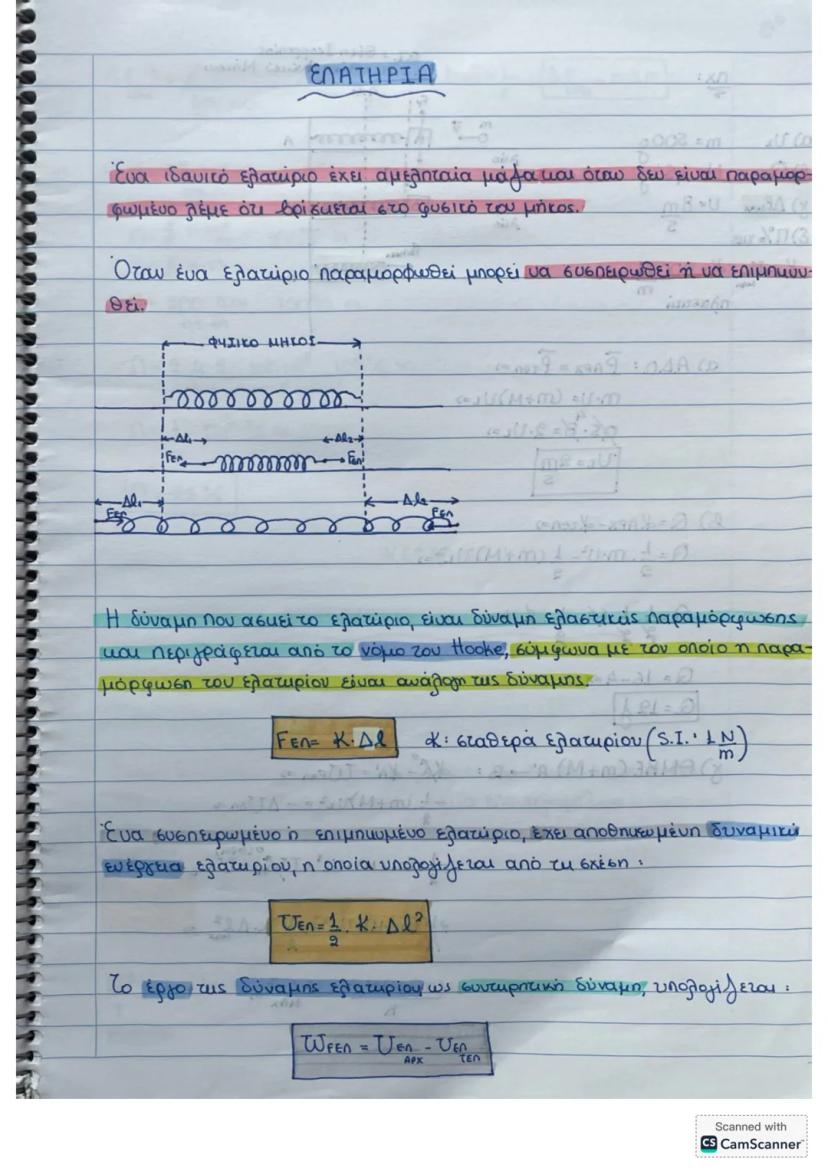 ΕΛΑΤΗΡΙΑ
Ένα ιδανικό ελατήριο έχει αμεληταία μάζα και όταν δεν είναι παραμορ-
φωμένο λέμε ότι βρίσκεται στο φυσικό του μήκος.
Όταν ένα ελατήριο παραμορφωθεί μπορεί να συσπειρωθεί ή να επιμηκυν-
θεί.
ΦΥΣΙΚΟ ΜΗΚΟΣ
Δl₁ Δl₂
Fελ Fελ
Δl₁ Δl₂
Fελ Fελ
Η δύναμη που ασκεί το ελατήριο, είναι δύναμη ελαστικής παραμόρφωσης
και περιγράφεται από το νόμο του Hooke, σύμφωνα με τον οποίο η παρα-
μόρφωση του ελατηρίου είναι ανάλογη της δύναμης.
Fελ = K·Δl K: σταθερά ελατηρίου (S.I.: 1 N/m)
Ένα συσπειρωμένο ή επιμηκυμένο ελατήριο, έχει αποθηκευμένη δυναμική
ενέργεια ελατηρίου, η οποία υπολογίζεται από τη σχέση :
Uελ = 1/2 · K · Δl²
Το έργο της δύναμης ελατηρίου ως συντηρητική δύναμη, υπολογίζεται :
WFελ = Uελ ΑΡΧ - Uελ ΤΕΛ
Scanned with
CS CamScanner